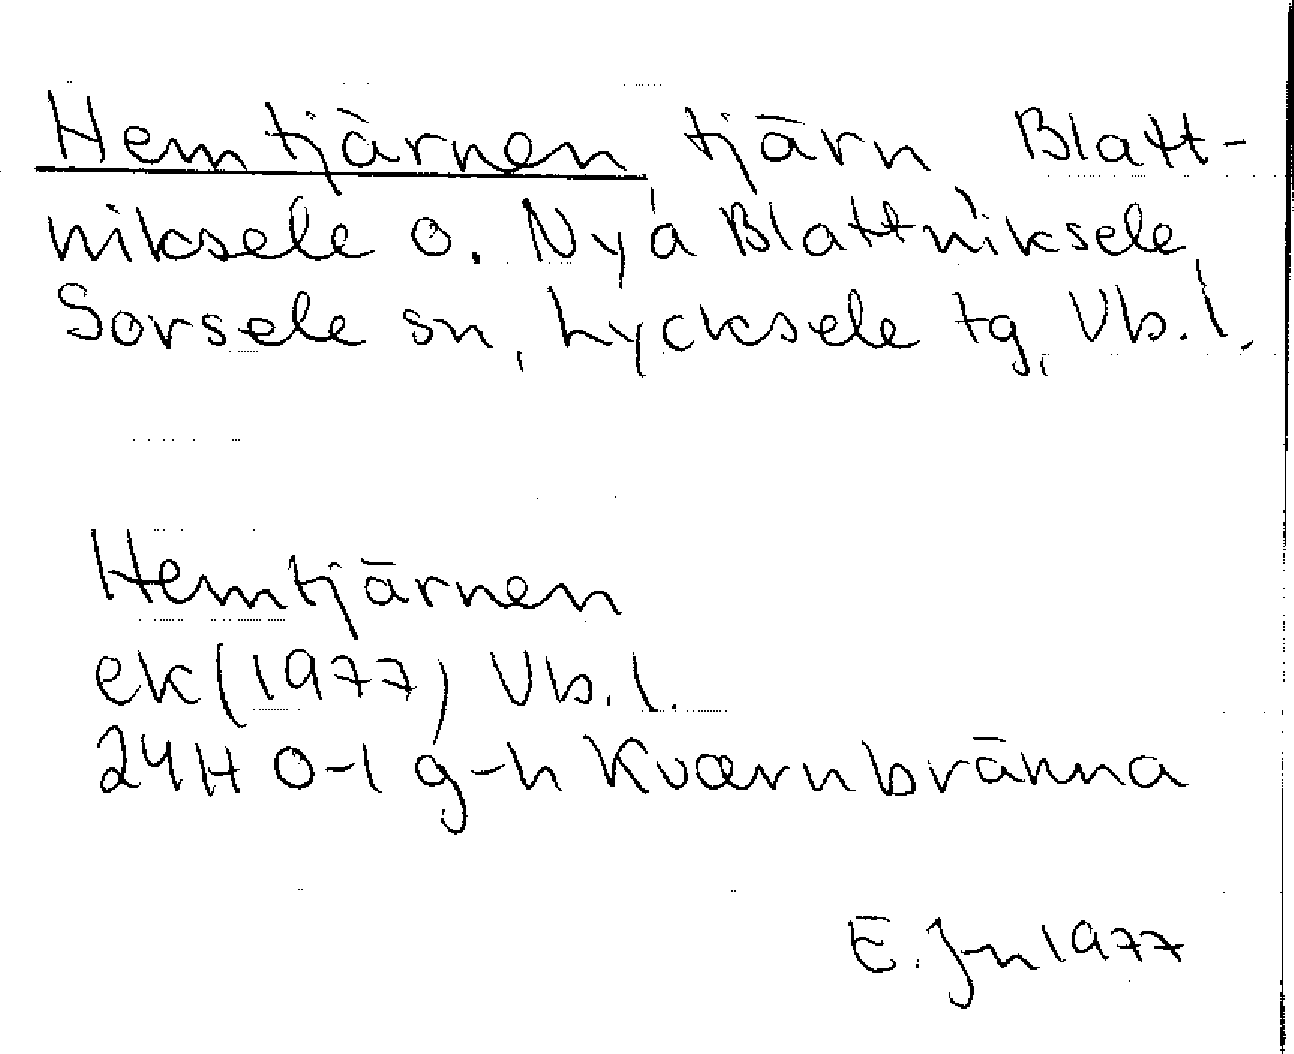 Hemtjärnen tjärn Blatt-
niksele o. Nya Blattniksele,
Sorsele sn, Lycksele tg, Vb. l.
Hemtjärnen
ek (1977) Vb. l.
24H 0-1 g-h Kvarnbränna
E. J-n 1977